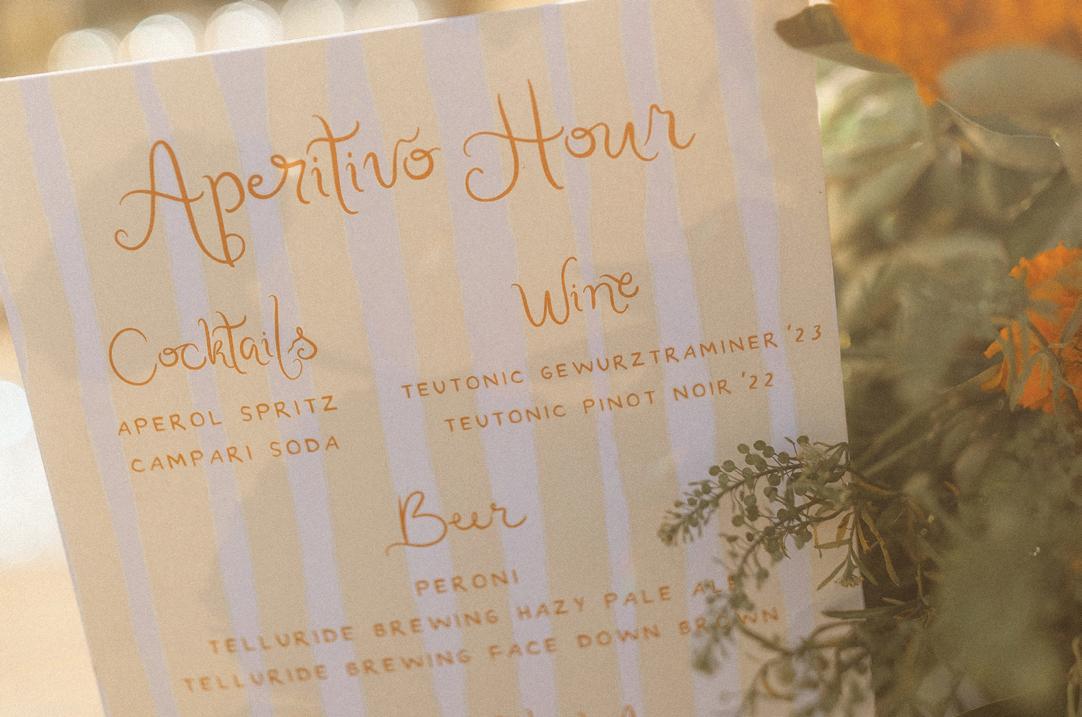 Aperitivo Hour
Cocktails
APEROL SPRITZ
CAMPARI SODA
Wine
TEUTONIC GEWURZTRAMINER '23
TEUTONIC PINOT NOIR '22
Beer
PERONI
TELLURIDE BREWING HAZY PALE ALE
TELLURIDE BREWING FACE DOWN BROWN